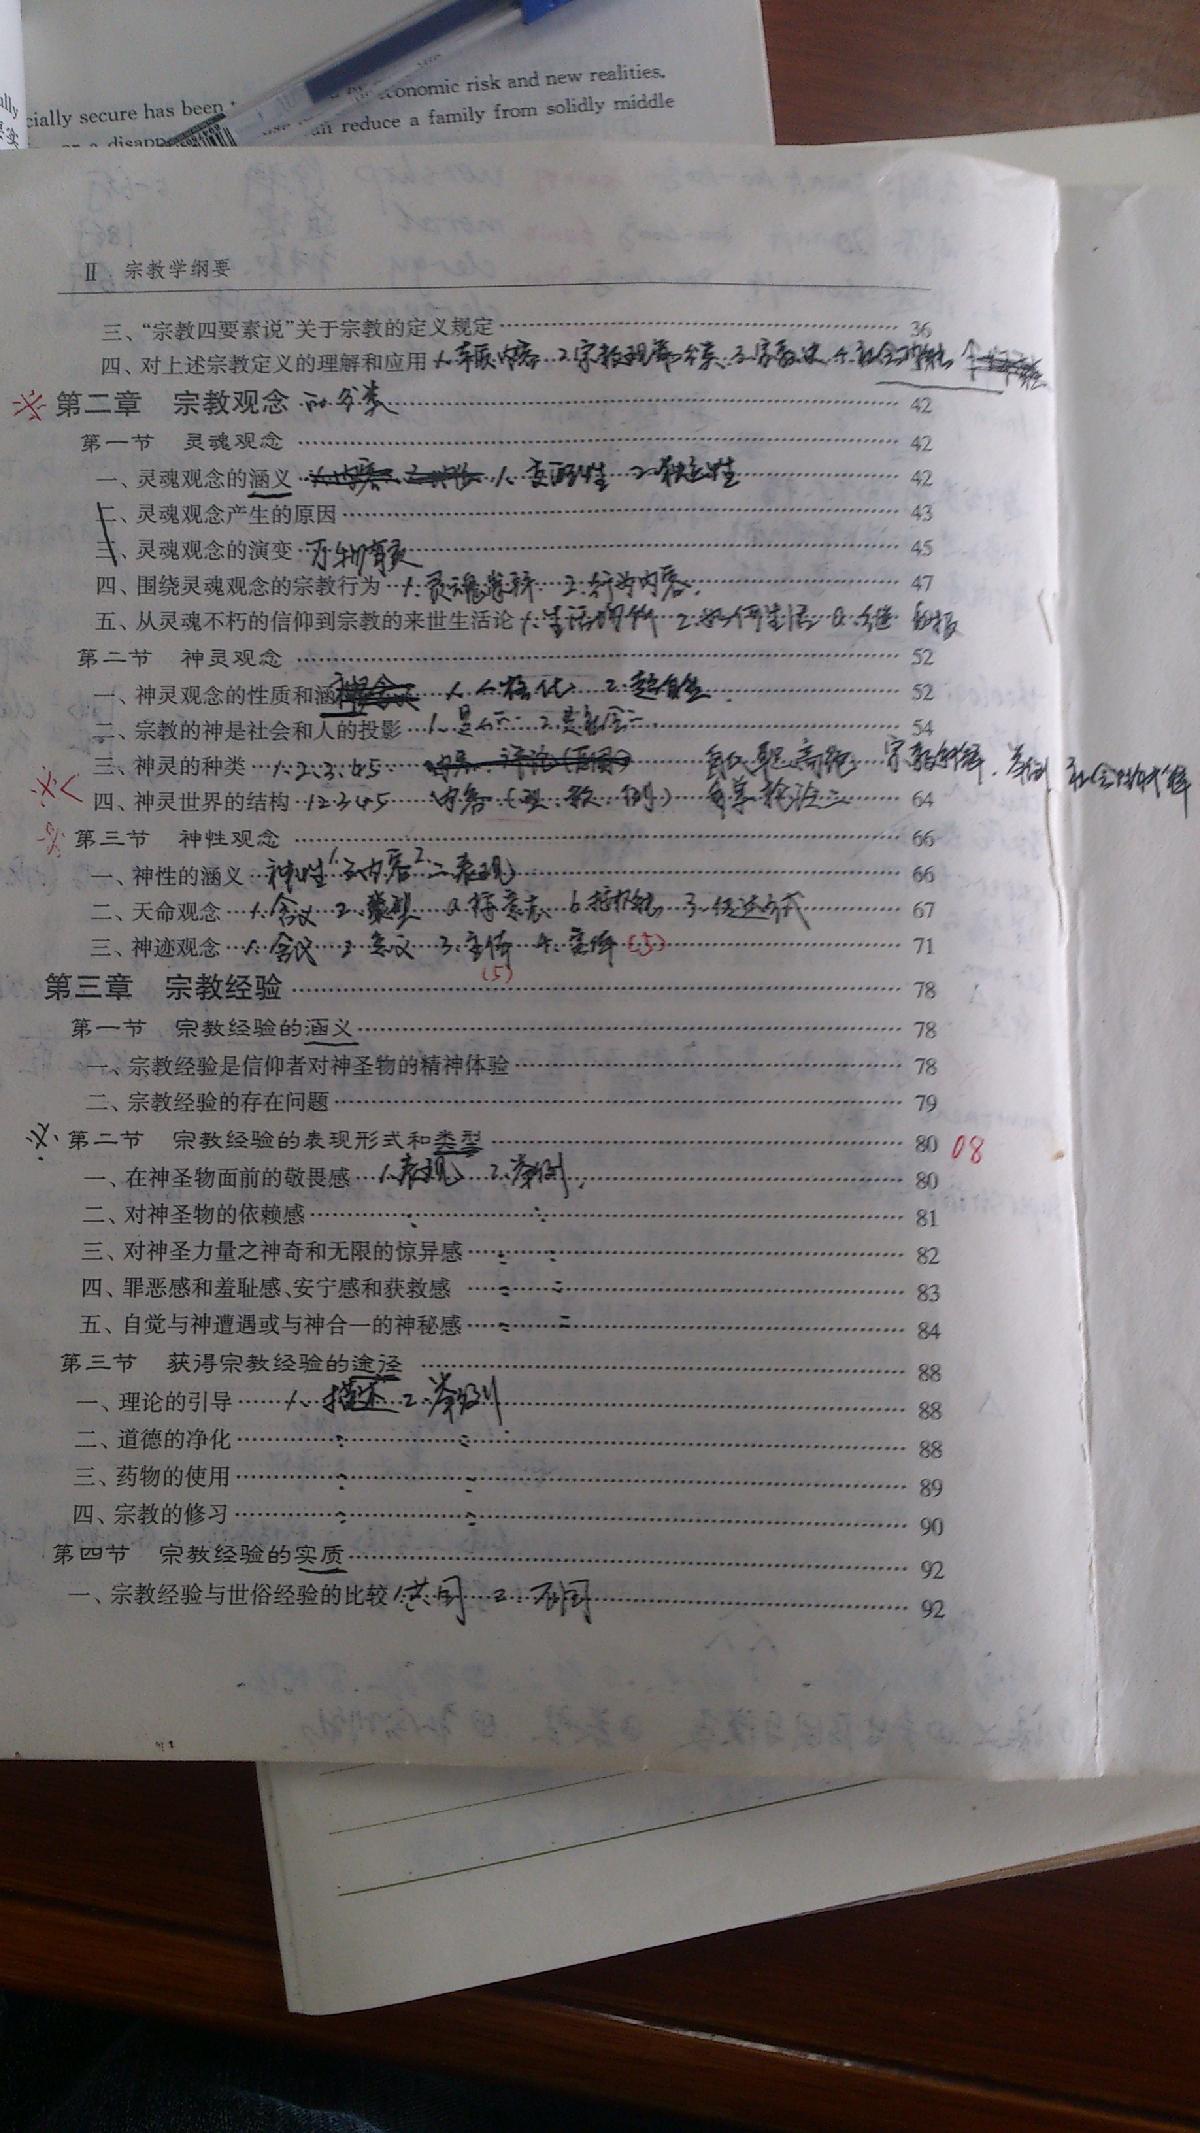 cially secure has been economic risk and new realities.
reduce a family from solidly middle
II 宗教学纲要
三、“宗教四要素说”关于宗教的定义规定 36
四、对上述宗教定义的理解和应用 1. 2.宗教现象分类 3.宗教史 4.社会功能
第二章 宗教观念 的分类 42
第一节 灵魂观念 42
一、灵魂观念的涵义 1. 支配性 2. 42
二、灵魂观念产生的原因 43
三、灵魂观念的演变 万物有灵 45
四、围绕灵魂观念的宗教行为 1.灵魂崇拜 2.行为内容 47
五、从灵魂不朽的信仰到宗教的来世生活论 1.生活场所 2.如何生活
第二节 神灵观念 52
一、神灵观念的性质和涵 1.人格化 2.超自然 52
二、宗教的神是社会和人的投影 1.是人 2.是社会 54
三、神灵的种类 1.2.3.4.5
四、神灵世界的结构 1 2 3 4 5 内容 64
第三节 神性观念 66
一、神性的涵义 神性 1.内容 2.表现 66
二、天命观念 1.含义 2.类型 3.传达方式 67
三、神迹观念 1.含义 2.意义 3. 4. (5) 71
(5)
第三章 宗教经验 78
第一节 宗教经验的涵义 78
一、宗教经验是信仰者对神圣物的精神体验 78
二、宗教经验的存在问题 79
第二节 宗教经验的表现形式和类型 80 08
一、在神圣物面前的敬畏感 1.表现 2.举例 80
二、对神圣物的依赖感 81
三、对神圣力量之神奇和无限的惊异感 82
四、罪恶感和羞耻感、安宁感和获救感 83
五、自觉与神遭遇或与神合一的神秘感 84
第三节 获得宗教经验的途径 88
一、理论的引导 1.描述 2.举例 88
二、道德的净化 88
三、药物的使用 89
四、宗教的修习 90
第四节 宗教经验的实质 92
一、宗教经验与世俗经验的比较 1.共同 2.不同 92